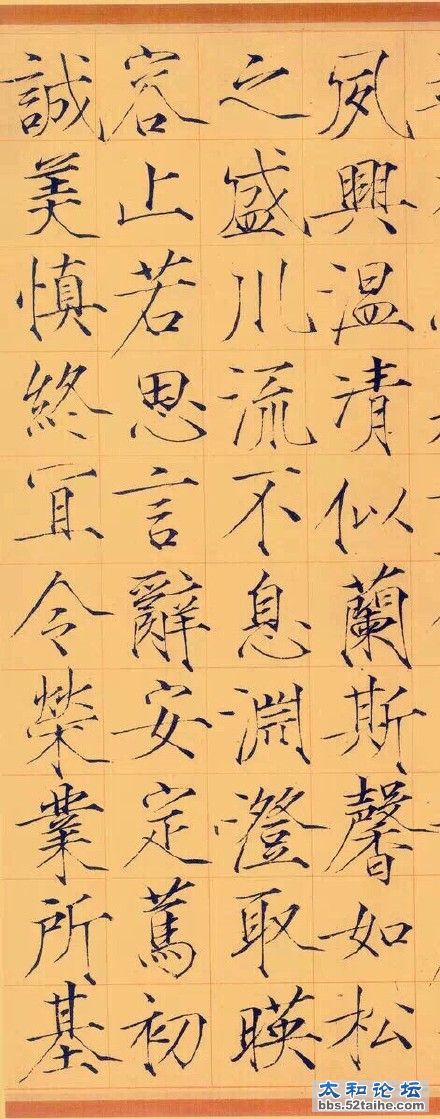 夙興温清似蘭斯馨如松
之盛川流不息淵澄取暎
容止若思言辭安定篤初
誠美慎終宜令榮業所基
太和论坛
bbs.52taihe.com